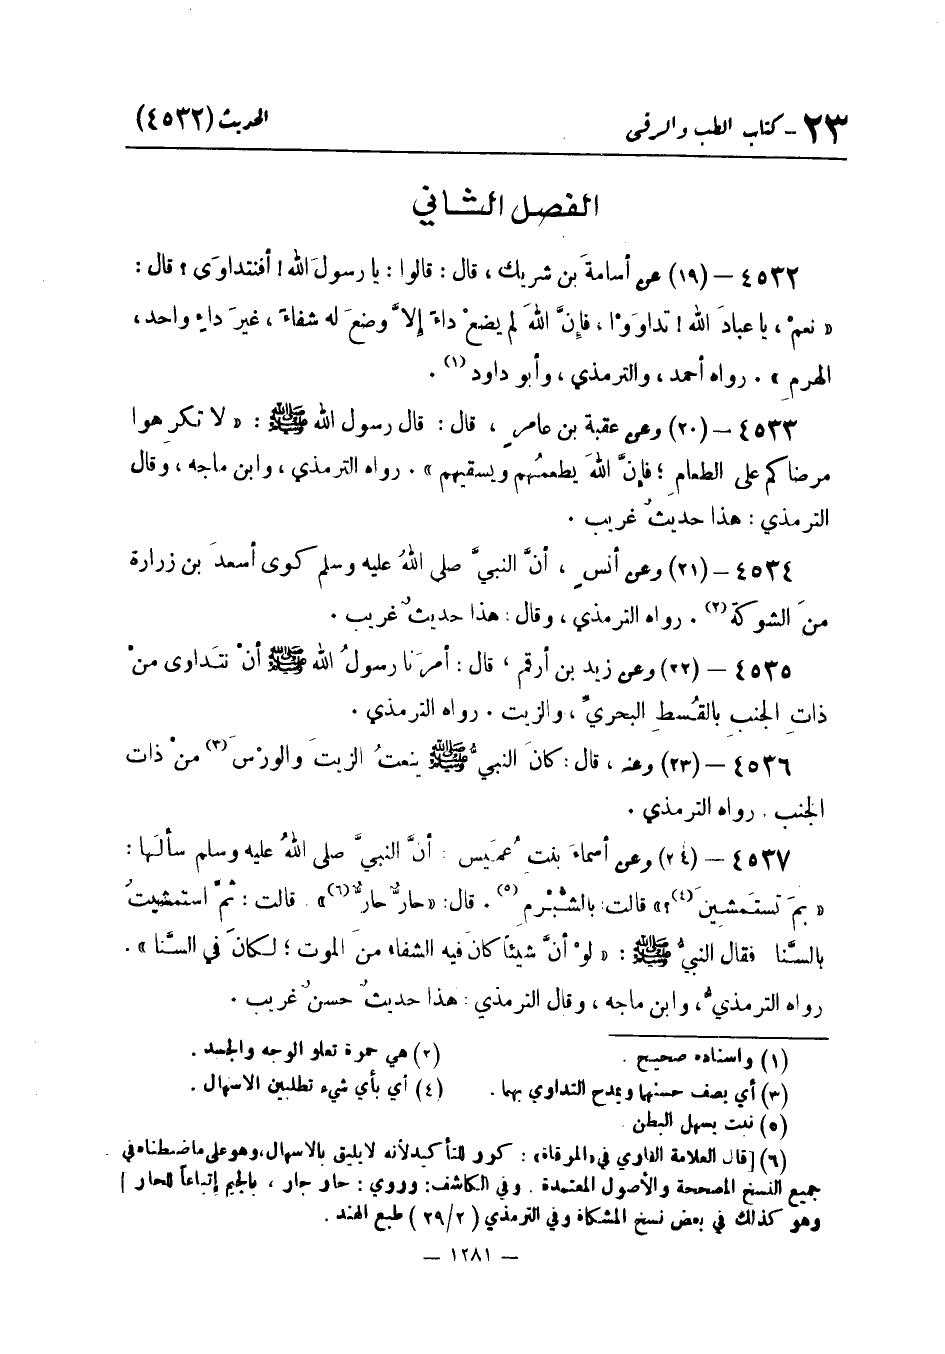 ٢٣ - كتاب الطب والرقى الحديث (٤٥٣٢)
الفصل الثاني
٤٥٣٢ – (١٩) عن أسامةَ بن شريك ، قال : قالوا : يا رسولَ الله ! أفنتداوَى ؟ قال :
« نعمْ ، يا عبادَ الله ! تداوَوْا ، فإنَّ اللهَ لم يضعْ داءً إلاَّ وضعَ له شفاءً ، غيرَ داءٍ واحد ،
الهرمِ » . رواه أحمد ، والترمذي ، وأبو داود (١) .
٤٥٣٣ – (٢٠) وعن عقبة بن عامرٍ ، قال : قال رسول الله ﷺ : « لا تكرهوا
مرضاكم على الطعامِ ؛ فإنَّ اللهَ يطعمُهم ويسقيهم » . رواه الترمذي ، وابن ماجه ، وقال
الترمذي : هذا حديثٌ غريب .
٤٥٣٤ – (٢١) وعن أنسٍ ، أنَّ النبيَّ صلى اللهُ عليه وسلم كوى أسعدَ بن زرارة
منَ الشوكة (٢) . رواه الترمذي ، وقال : هذا حديثٌ غريب .
٤٥٣٥ – (٢٢) وعن زيد بن أرقم ، قال : أمرَنا رسولُ الله ﷺ أنْ نتَداوى منْ
ذاتِ الجنبِ بالقُسطِ البحريِّ ، والزيت . رواه الترمذي .
٤٥٣٦ – (٢٣) وعنه ، قال : كانَ النبيُّ ﷺ ينعتُ الزيتَ والورْسَ (٣) منْ ذات
الجنب . رواه الترمذي .
٤٥٣٧ – (٢٤) وعن أسماءَ بنت عُمَيس : أنَّ النبيَّ صلى اللهُ عليه وسلم سألَها :
« بمَ تستَمشينَ (٤) ؟» قالت : بالشُّبْرمِ (٥) . قال : «حارٌّ حارٌّ (٦)» . قالت : ثمَّ استمشيتُ
بالسَّنا فقال النبيُّ ﷺ : « لوْ أنَّ شيئاً كانَ فيه الشفاء منَ الموت ؛ لكانَ في السَّنا » .
رواه الترمذيُّ ، وابن ماجه ، وقال الترمذي : هذا حديثٌ حسنٌ غريب .
(١) وإسناده صحيح . (٢) هي حمرة تعلو الوجه والجسد .
(٣) أي يصف حسنها ويمدح التداوي بهما . (٤) أي بأي شيء تطلبين الاسهال .
(٥) نبت يسهل البطن
(٦) [قال العلامة القاري في «المرقاة» : كرر للتأكيد لأنه لا يليق بالاسهال، وهو على ما ضبطناه في
جميع النسخ المصححة والأصول المعتمدة . وفي الكاشف: وروي : حار جار ، بالجيم إتباعاً للحار ]
وهو كذلك في بعض نسخ المشكاة وفي الترمذي ( ٢٩/٢ ) طبع الهند .
– ١٢٨١ –